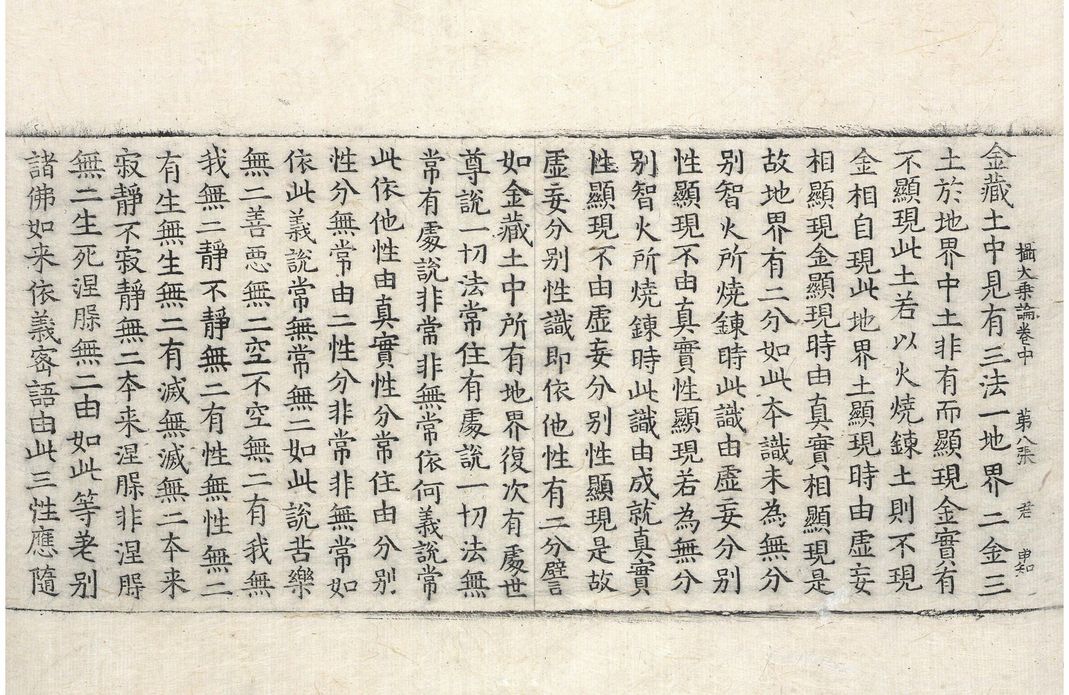 攝大乗論卷中　第八張　君　申知
金藏土中見有三法一地界二金三
土於地界中土非有而顯現金實有
不顯現此土若以火燒鍊土則不現
金相自現此地界土顯現時由虛妄
相顯現金顯現時由真實相顯現是
故地界有二分如此本識未為無分
別智火所燒鍊時此識由虛妄分別
性顯現不由真實性顯現若為無分
別智火所燒鍊時此識由成就真實
性顯現不由虛妄分別性顯現是故
虛妄分別性識即依他性有二分譬
如金藏土中所有地界復次有處世
尊說一切法常住有處說一切法無
常有處說非常非無常依何義說常
此依他性由真實性分常住由分別
性分無常由二性分非常非無常如
依此義說常無常無二如此說苦樂
無二善惡無二空不空無二有我無
我無二靜不靜無二有性無性無二
有生無生無二有滅無滅無二本来
寂靜不寂靜無二本来涅槃非涅槃
無二生死涅槃無二由如此等差別
諸佛如来依義密語由此三性應隨